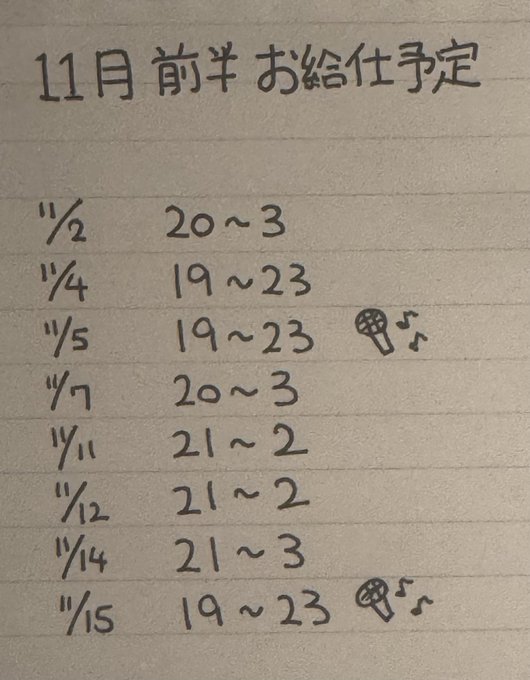 11月 前半 お給仕予定
11/2 20~3
11/4 19~23
11/5 19~23
11/7 20~3
11/11 21~2
11/12 21~2
11/14 21~3
11/15 19~23